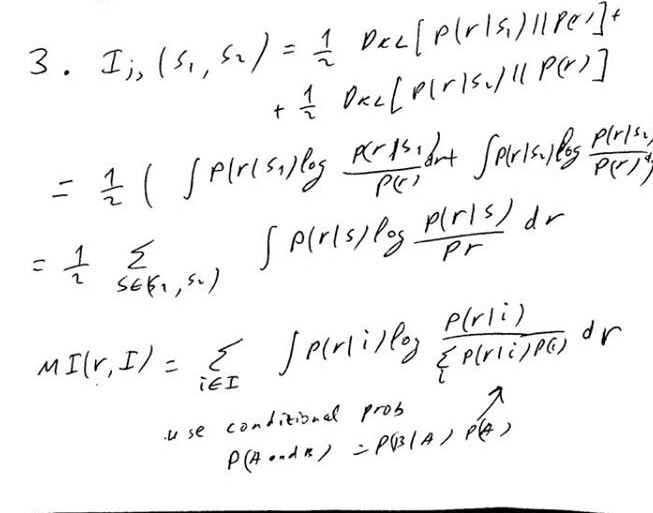 3. I_{js}(s₁, s₂) = 1/2 D_{KL}[P(r|s₁)||P(r)]+
+ 1/2 D_{KL}[P(r|s₂)||P(r)]
= 1/2 ( ∫P(r|s₁)log P(r|s₁)/P(r) dr+ ∫P(r|s₂)log P(r|s₂)/P(r) d
= 1/2 Σ_{s∈{s₁,s₂}} ∫P(r|s)log P(r|s)/Pr dr
MI(r,I) = Σ_{i∈I} ∫P(r|i)log P(r|i)/Σ_i P(r|i)P(i) dr
use conditional prob
P(A and B) = P(B|A) P(A)